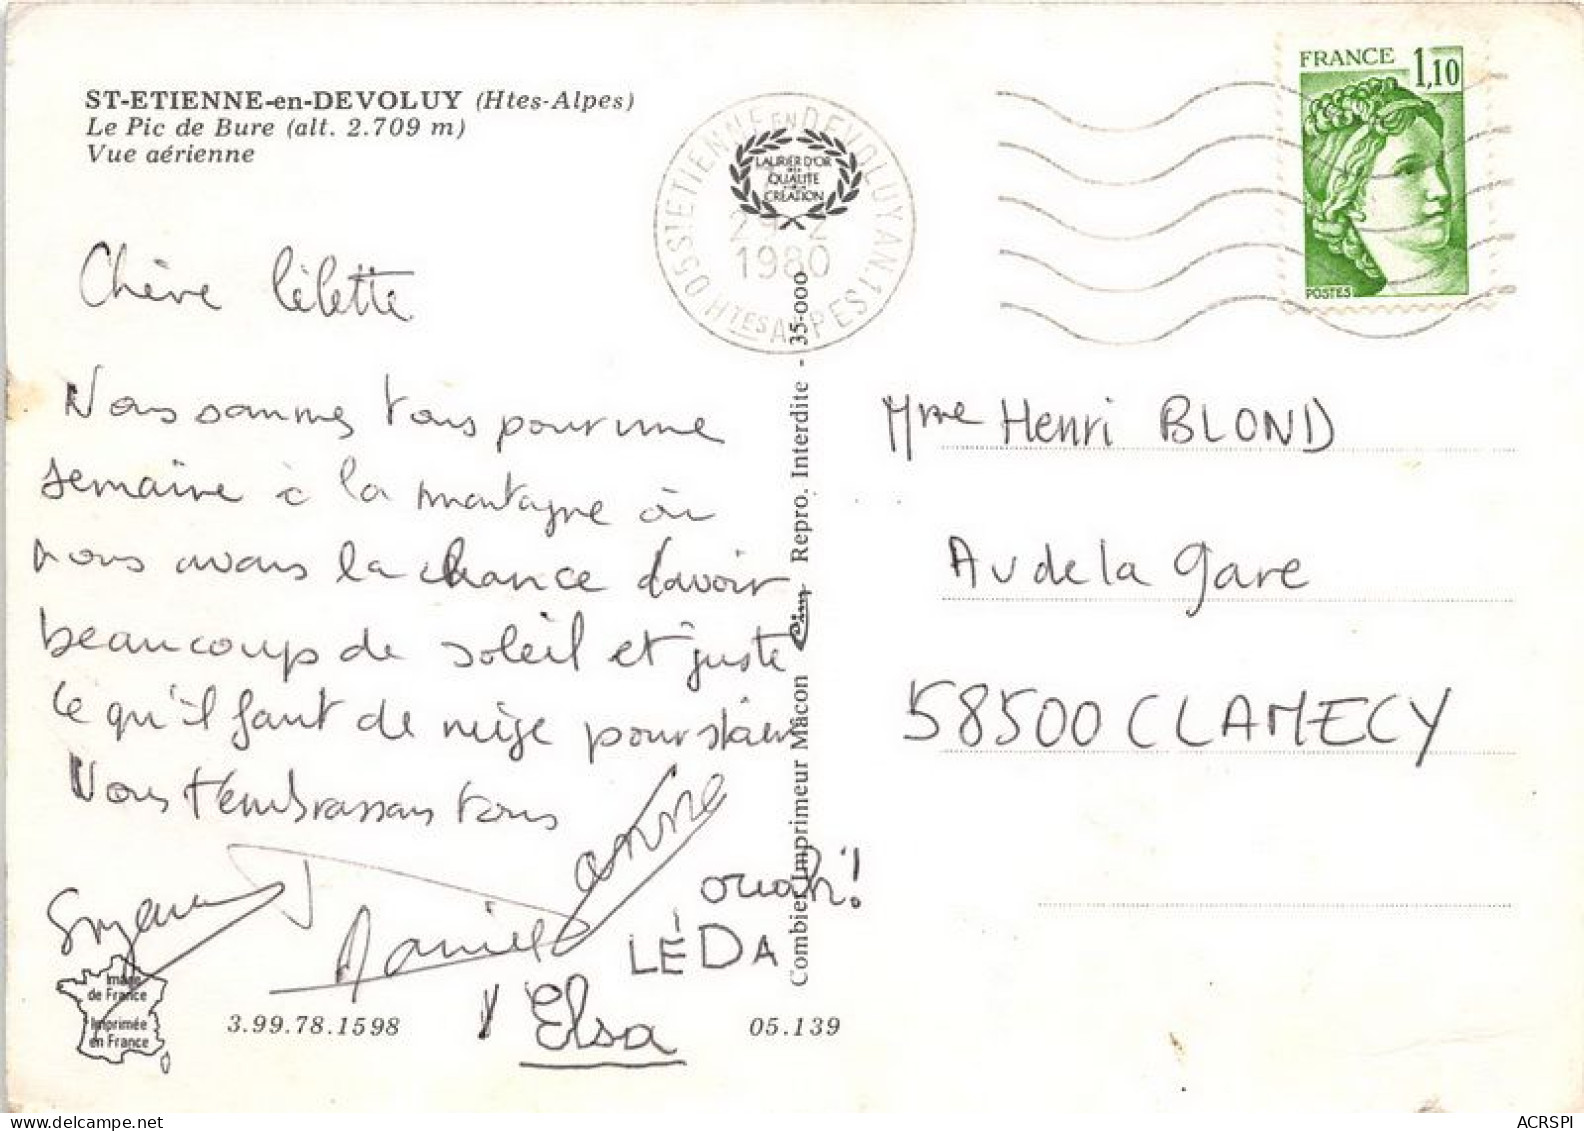 ST-ETIENNE-en-DEVOLUY (Htes-Alpes)
Le Pic de Bure (alt. 2.709 m)
Vue aérienne
05 ST ETIENNE EN DEVOLUY AN. 1
HTES ALPES
1980
LAURIER D'OR
QUALITE
CREATION
FRANCE 1,10
POSTES
Chère Lilette
Nous sommes tous pour une
semaine à la montagne où
nous avons la chance d'avoir
beaucoup de soleil et juste
ce qu'il faut de neige pour skier
Nous t'embrassons tous
Suzanne
Daniel
anne
ouah!
LÉDA
Elsa
Mme Henri BLOND
Av de la gare
58500 CLAMECY
Combier Imprimeur Mâcon Cim Repro. Interdite - 35-000
Image
de France
Imprimée
en France
3.99.78.1598
05.139
ACRSPI